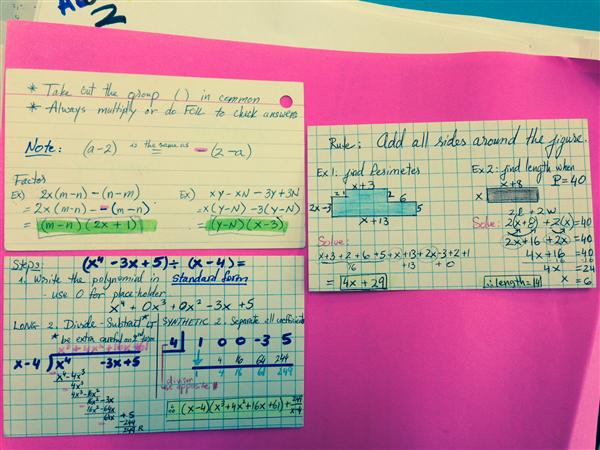 2
* Take out the group ( ) in common
* Always multiply or do FOIL to check answers
Note: (a-2) is the same as -(2-a)
Factor
Ex) 2x(m-n) - (n-m)
= 2x(m-n) - - (m-n)
= (m-n)(2x+1)
Ex) xy - xN - 3y + 3N
= x(y-N) - 3(y-N)
= (y-N)(x-3)
Rule: Add all sides around the figure.
Ex 1: find Perimeter
x+3
2
2
6
2x-3
5
x+13
Solve:
x+3+2+6+5+x+13+2x-3+2+1
16 +13 + 0
= 4x + 29
Ex 2: find length when
P=40
x+8
x
2l + 2w
Solve: 2(x+8) + 2(x) = 40
2x+16 + 2x = 40
4x+16 = 40
-16 -16
4x = 24
x = 6
∴ length = 14
Steps: (x⁴ - 3x + 5) ÷ (x - 4) =
1. Write the polynomial in standard form
- use 0 for placeholder
x⁴ + 0x³ + 0x² - 3x + 5
LONG 2. Divide - Subtract* or SYNTHETIC 2. Separate all coefficients
* be extra careful on 2nd term
x-4
x⁴ -3x+5
x⁴-4x³
4x³
4x³-16x²
16x²-3x
16x²-64x
61x +5
-244
249 R
4 1 0 0 -3 5
4 16 64 244
4 16 61 249
divisor
the opposite #
(x-4)(x³+4x²+16x+61)+ 249
x-4